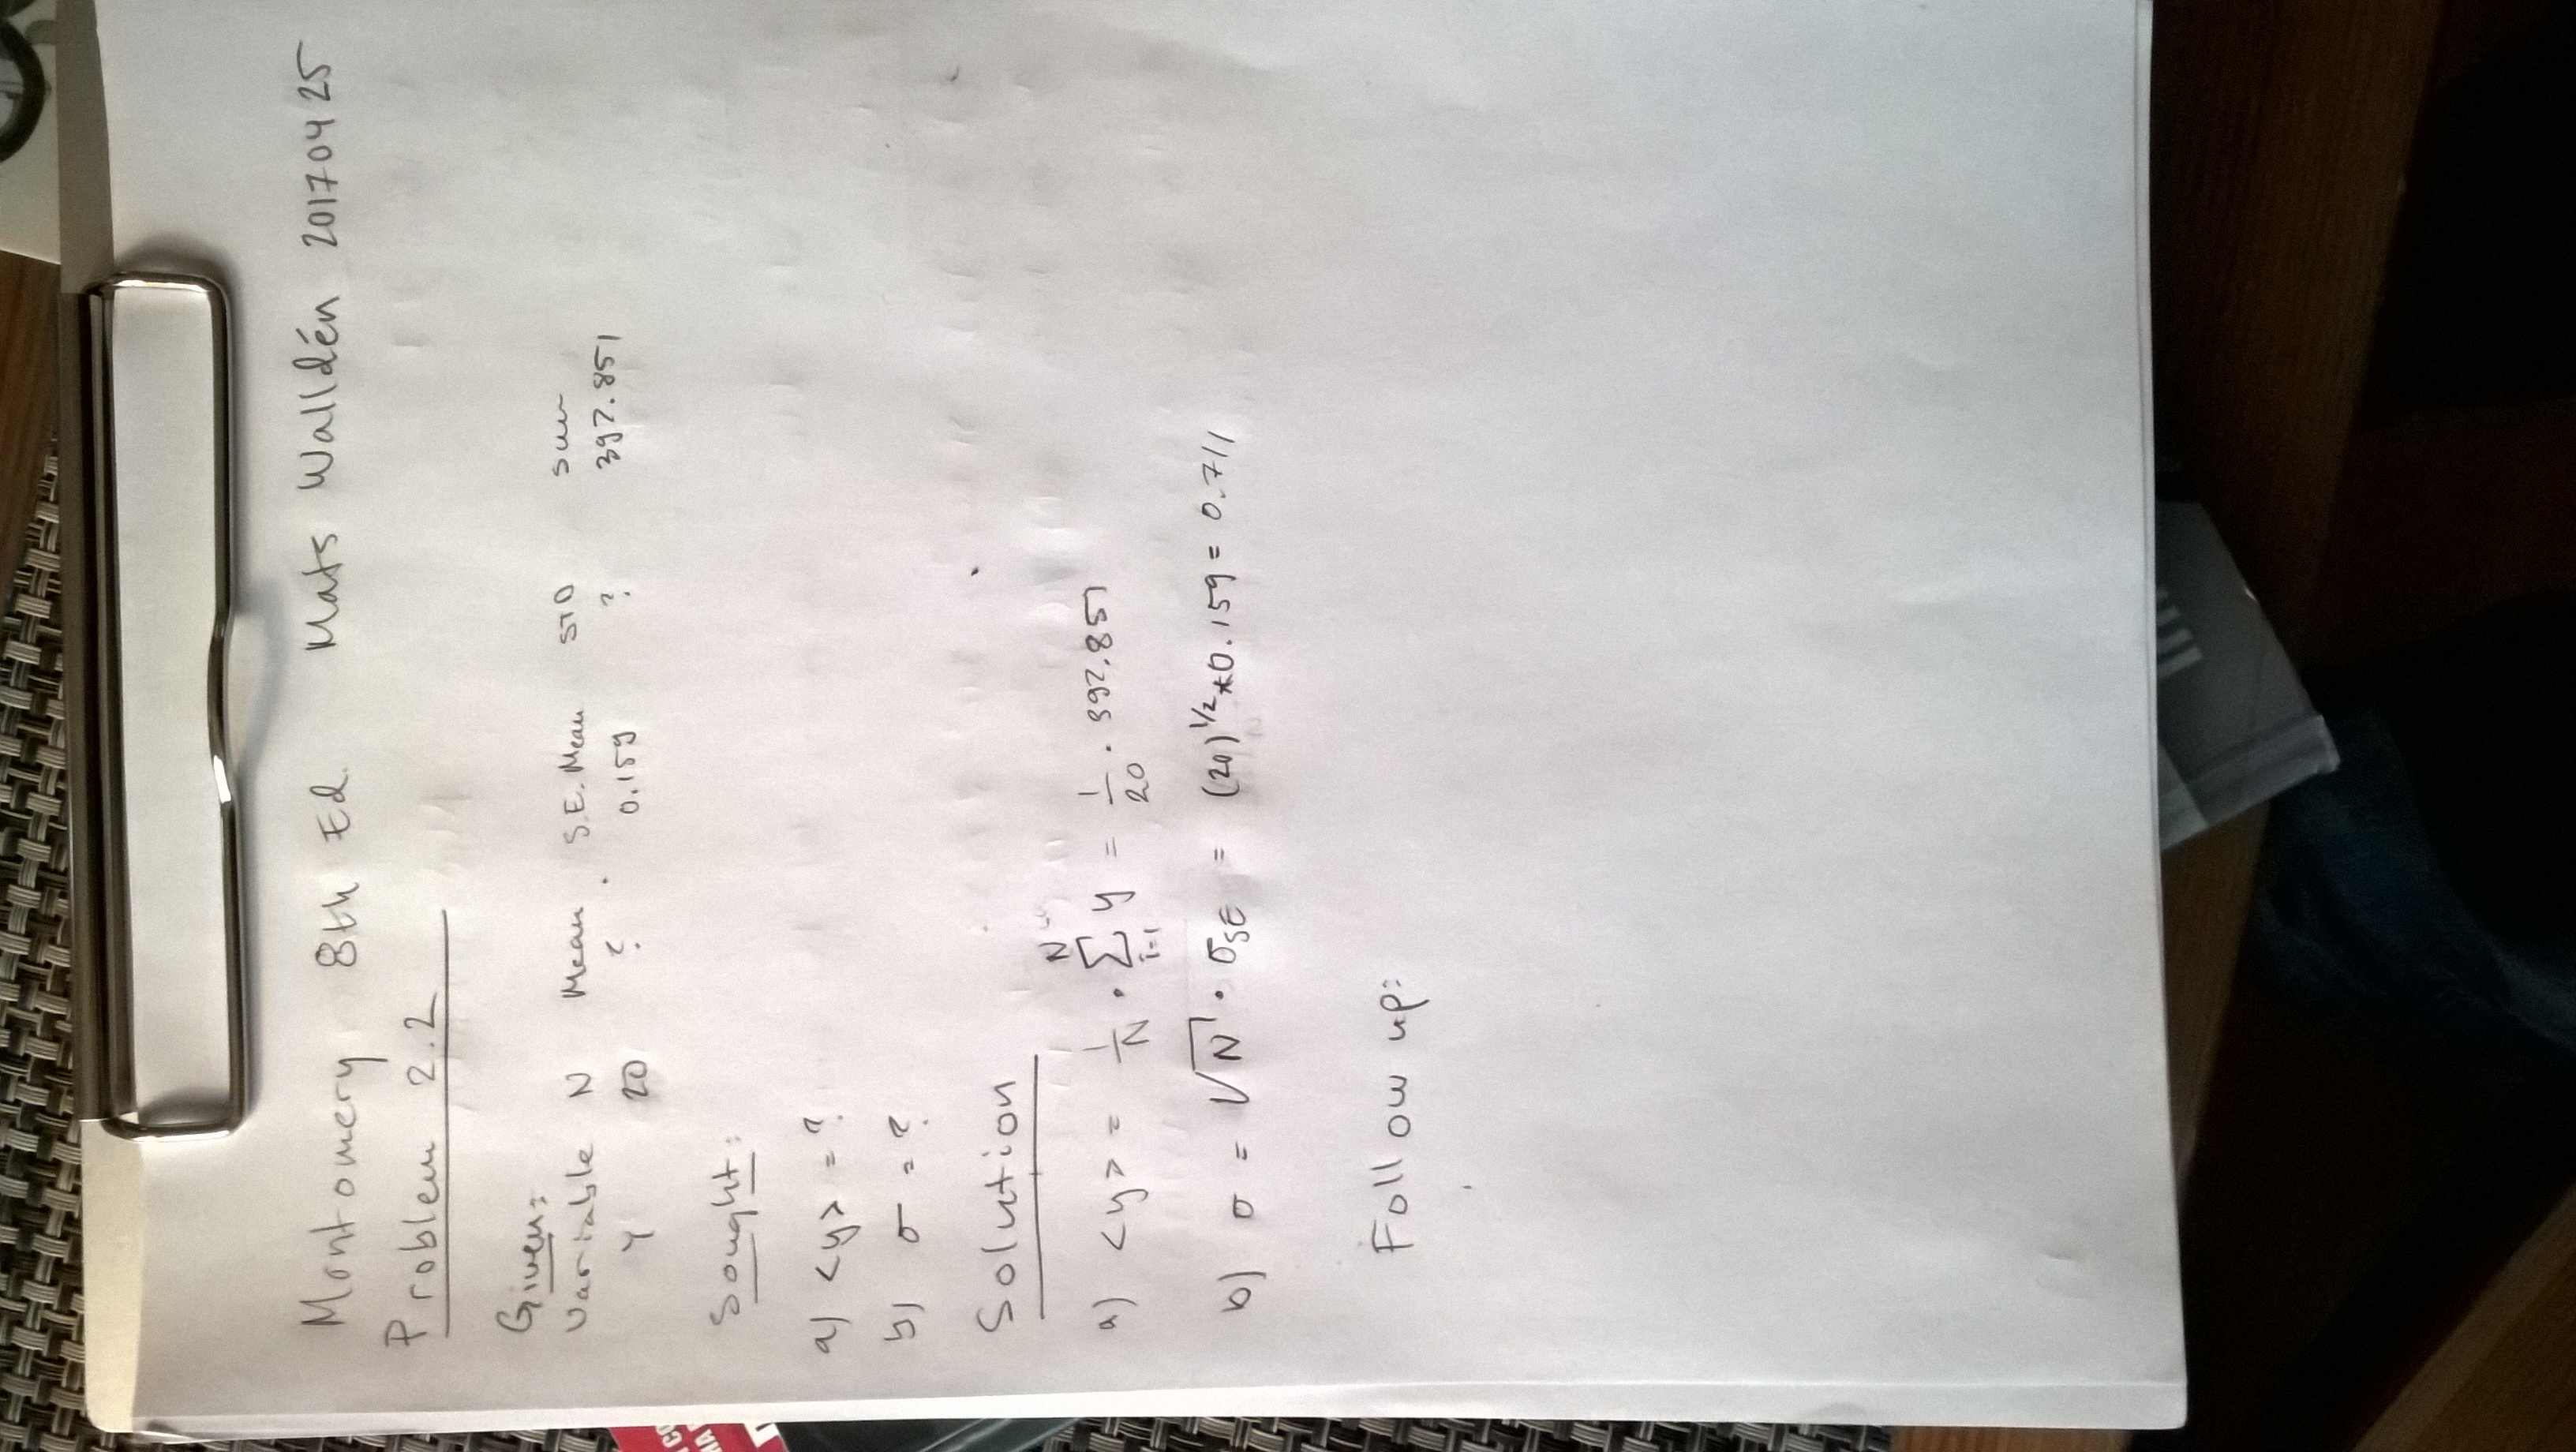 Montomery 8th Ed. Mats Walldén 20170425
Problem 2.2
Given:
Variable N Mean S.E. Mean STD Sum
Y 20 ? 0.159 ? 397.851
Sought:
a) <y> = ?
b) σ = ?
Solution
a) <y> = 1/N · ∑_{i=1}^{N} y = 1/20 · 397.851
b) σ = √N · σ_SE = (20)^1/2 * 0.159 = 0.711
Follow up: